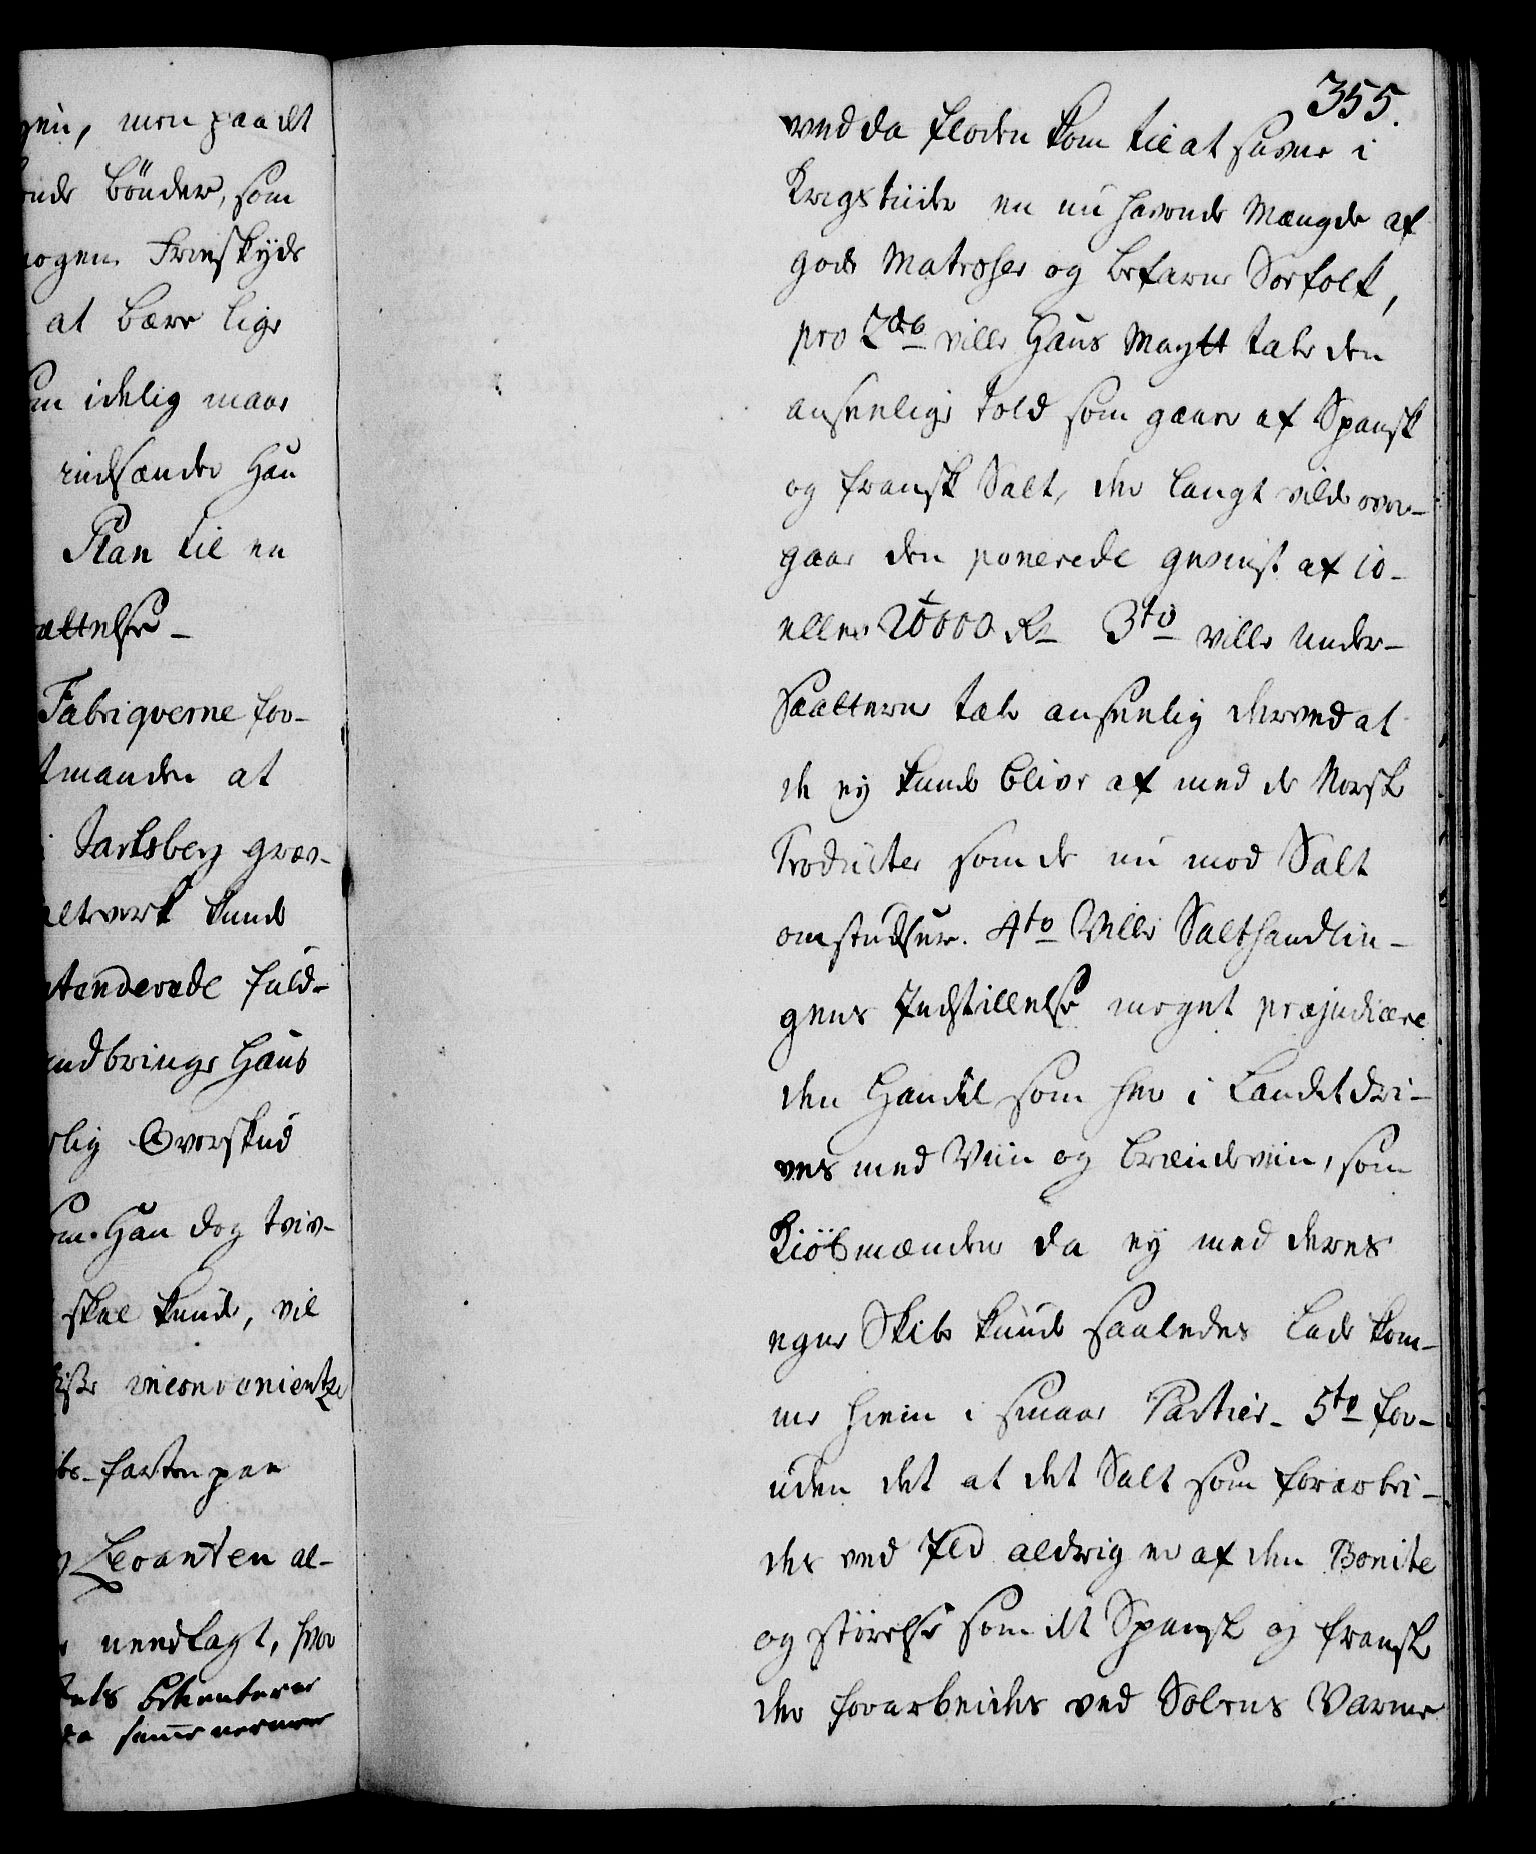 gen, men paa det
ende Bönder, som
nogen Frieskyds
at bære lige
som idelig maae
indsænder Han
Plan til en
ættelse_
Fabriqverne for-
tmanden at
i Jarlsberg Grev-
altverk kunde
ntenderede fuld-
indbringe Hans
rlig Overskud
som Han dog tviv-
skal kunde, vil
visse inconvenientzer
ibs-farten paa
Levanten al-
needlagt, hvor
bekenterer
samme nermer
355.
ved da floden kom til at savne i
Krigstiider en nu havende Mængde af
gode Matroser og befarne Søefolk,
pro 2do ville Hans Maytt tabe den
anseelige Told som gaaer af Spansk
og fransk Salt, der langt vilde over-
gaae den ponerede gevinst af 10-
eller 20000 Rd 3tio ville Under-
Saatterne tabe anseelig derved at
de ey kunde blive af med de Norske
Producter som de nu mod Salt
omstudser. 4to Ville Salthandlin-
gens Indstillelse meget præjudicere
den Handel som her i Landet dri-
ves med Viin og Brændeviin, som
Kiöbmænden da ey med deres
egne Skibe kunde saaledes lade kom-
me hiem i smaae Partier_ 5to for-
uden det at det Salt som forarbei-
des ved Ild aldrig er af den Bonite
og störelse som det Spansk og fransk
der forarbeides ved Solens Varme